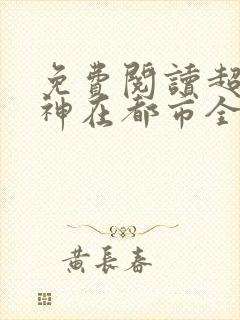 免費閱讀超
神在都市全
黃長春